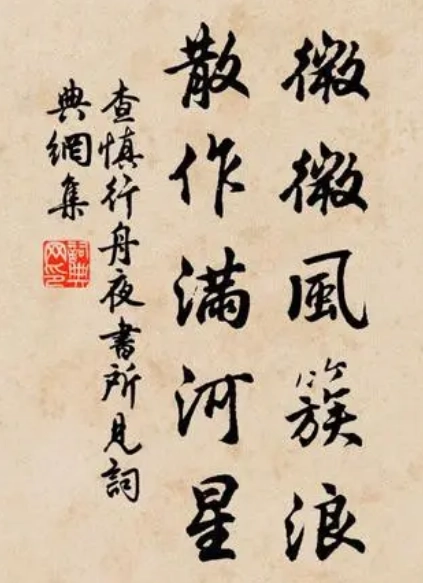 微微風簇浪
散作滿河星
查慎行舟夜書所見詞
典網集
詞典网印